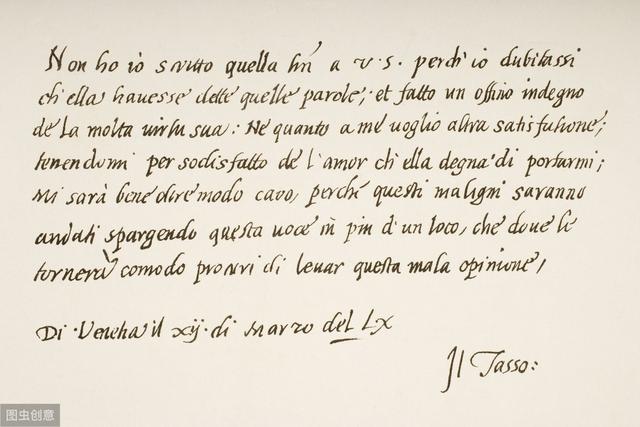 Non ho io scritto quella lrã a v. s. perch'io dubitassi
ch'ella havesse dette quelle parole; et fatto un offitio indegno
de la molta virtu sua: Ne quanto a me voglio altra satisfatione;
tenendomi per sodisfatto de l'amor ch'ella degna di portarmi;
Mi sarà bene oltre modo caro, perché questi maligni saranno
andati spargendo questa voce in piu d'un loco, che dove le
tornerà comodo procuri di levar questa mala opinione,
Di Venetia il xij. di Marzo del LX
Il Tasso:
图虫创意